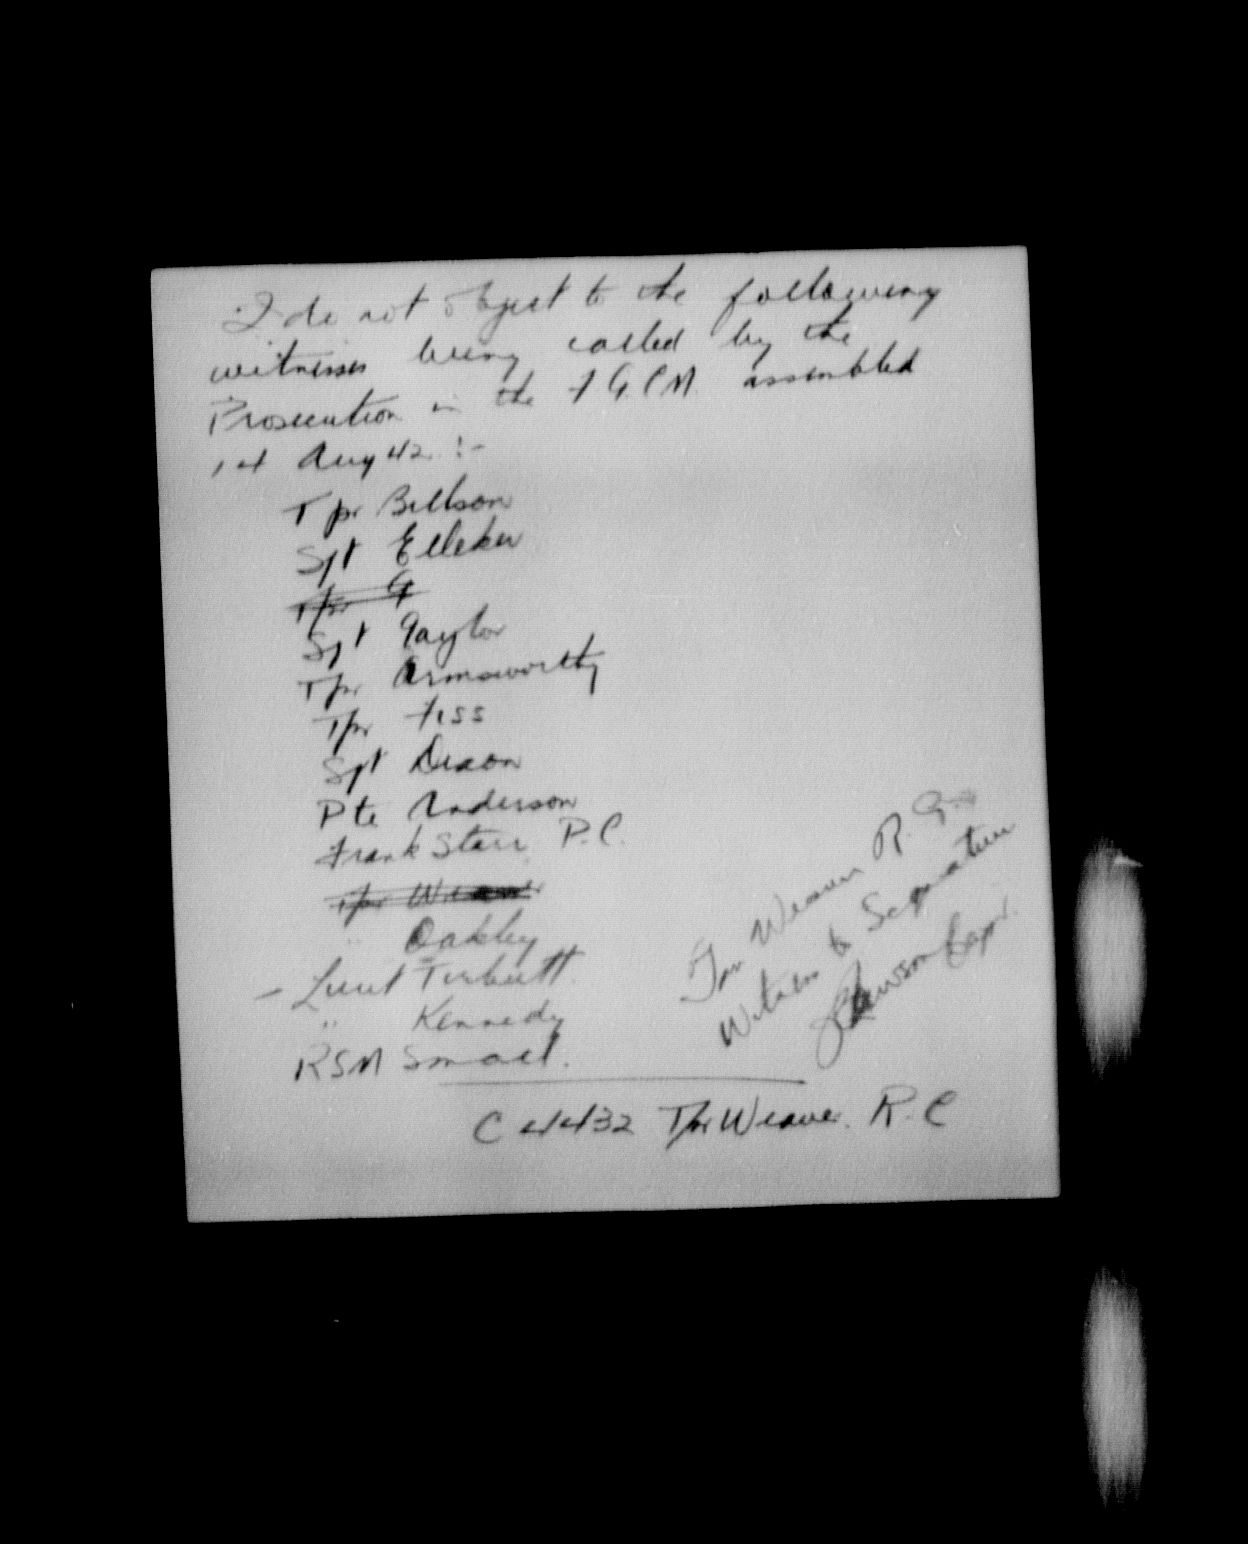 I do not object to the following
witnesses being called by the
Prosecution in the F.G.C.M. assembled
14 Aug 42. :-
Tpr Billson
Sgt Elleker
Tpr G
Sgt Taylor
Tpr Armsworthy
Tpr Fiss
Sgt Dixon
Pte Anderson
Frank Starr P.C.
Tpr Weaver
" Oakley
- Lieut Tirbutt.
" Kennedy
RSM Small.
Tpr Weaver R.
Witness to Signature
Capt.
C 4432 Tpr Weaver. R. C